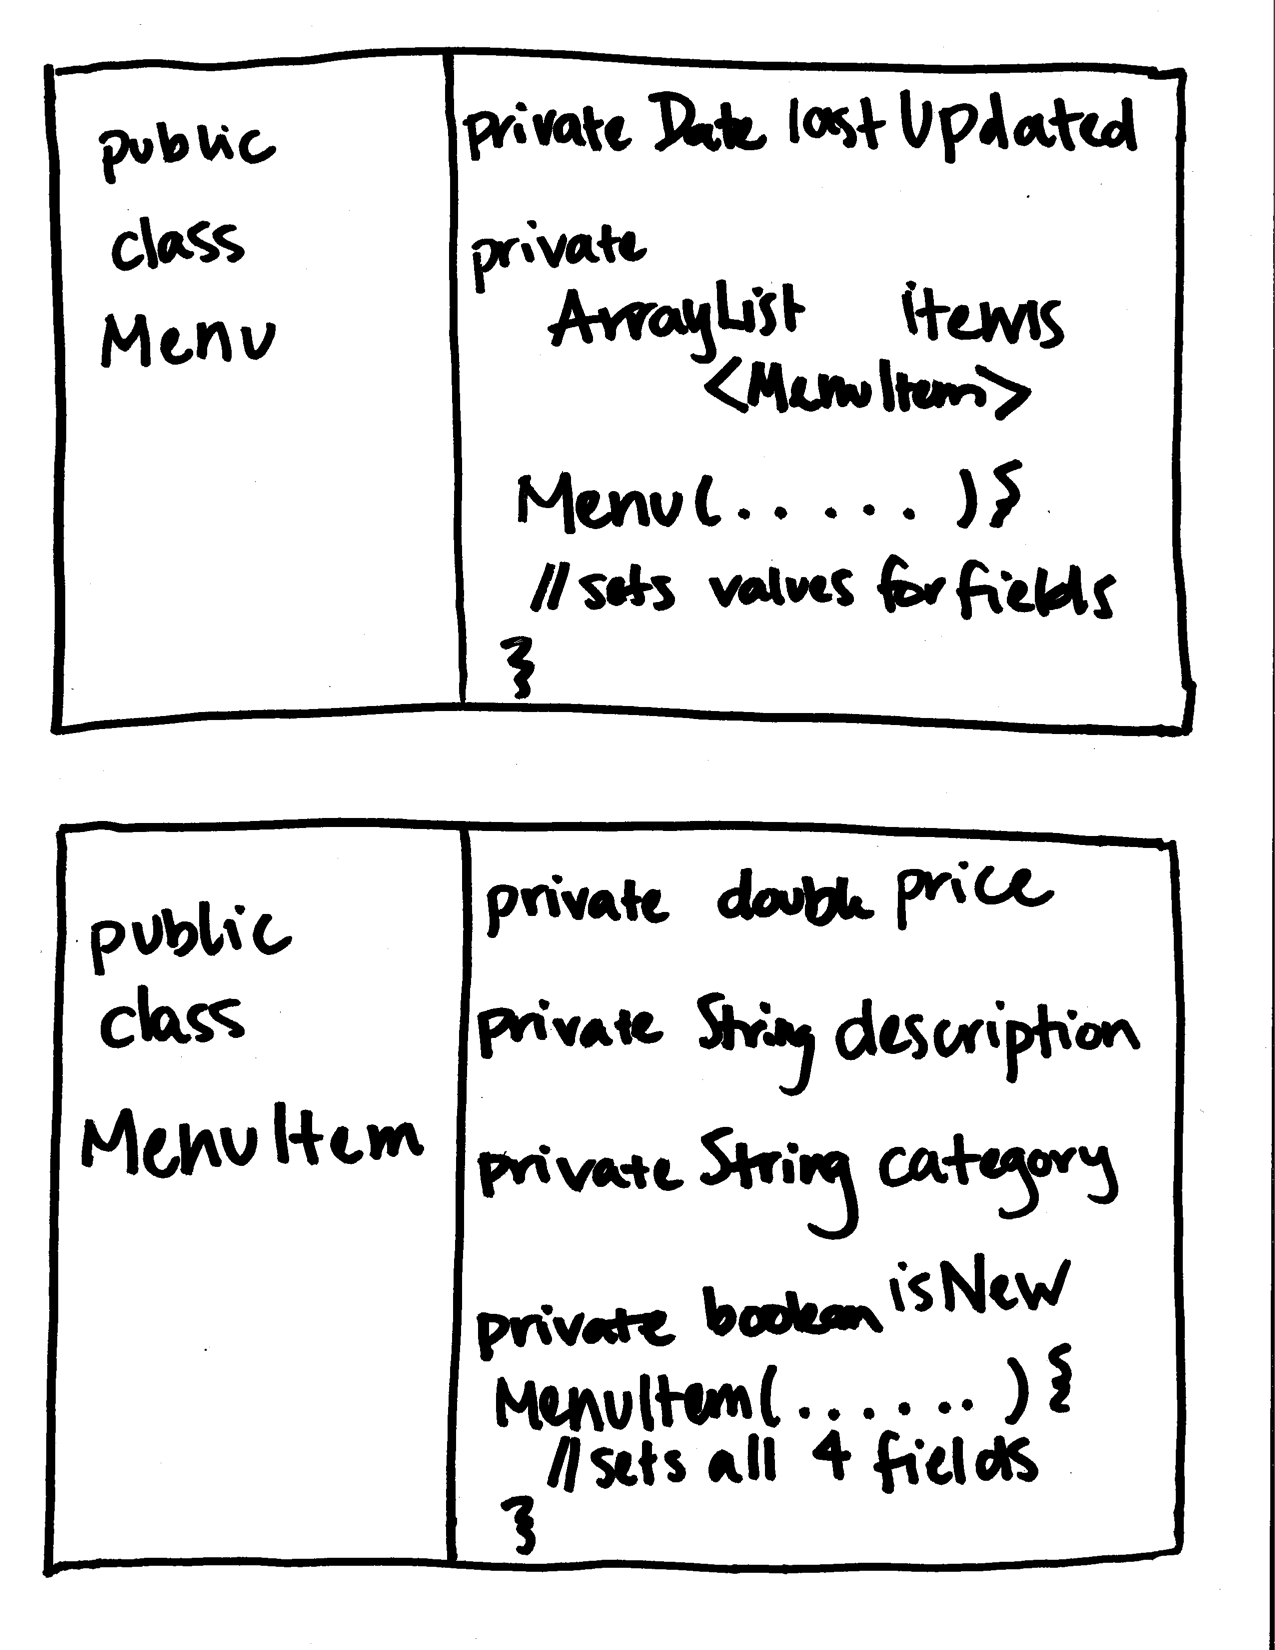 public
class
Menu
private Date lastUpdated
private
ArrayList items
<MenuItem>
Menu(.....){
//sets values for fields
}
public
class
MenuItem
private double price
private String description
private String category
private boolean isNew
MenuItem(......){
//sets all 4 fields
}